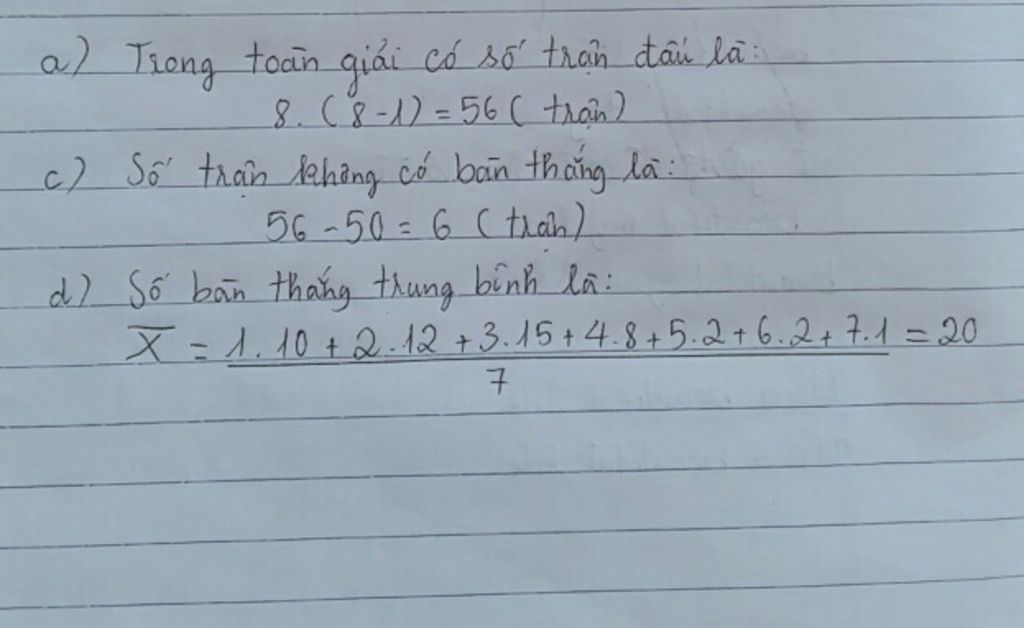 a) Trong toàn giải có số trận đấu là:
8. (8-1) = 56 ( trận)
c) Số trận không có bàn thắng là:
56 - 50 = 6 ( trận)
d) Số bàn thắng trung bình là:
X̅ = 1.10 + 2.12 + 3.15 + 4.8 + 5.2 + 6.2 + 7.1 = 20
7